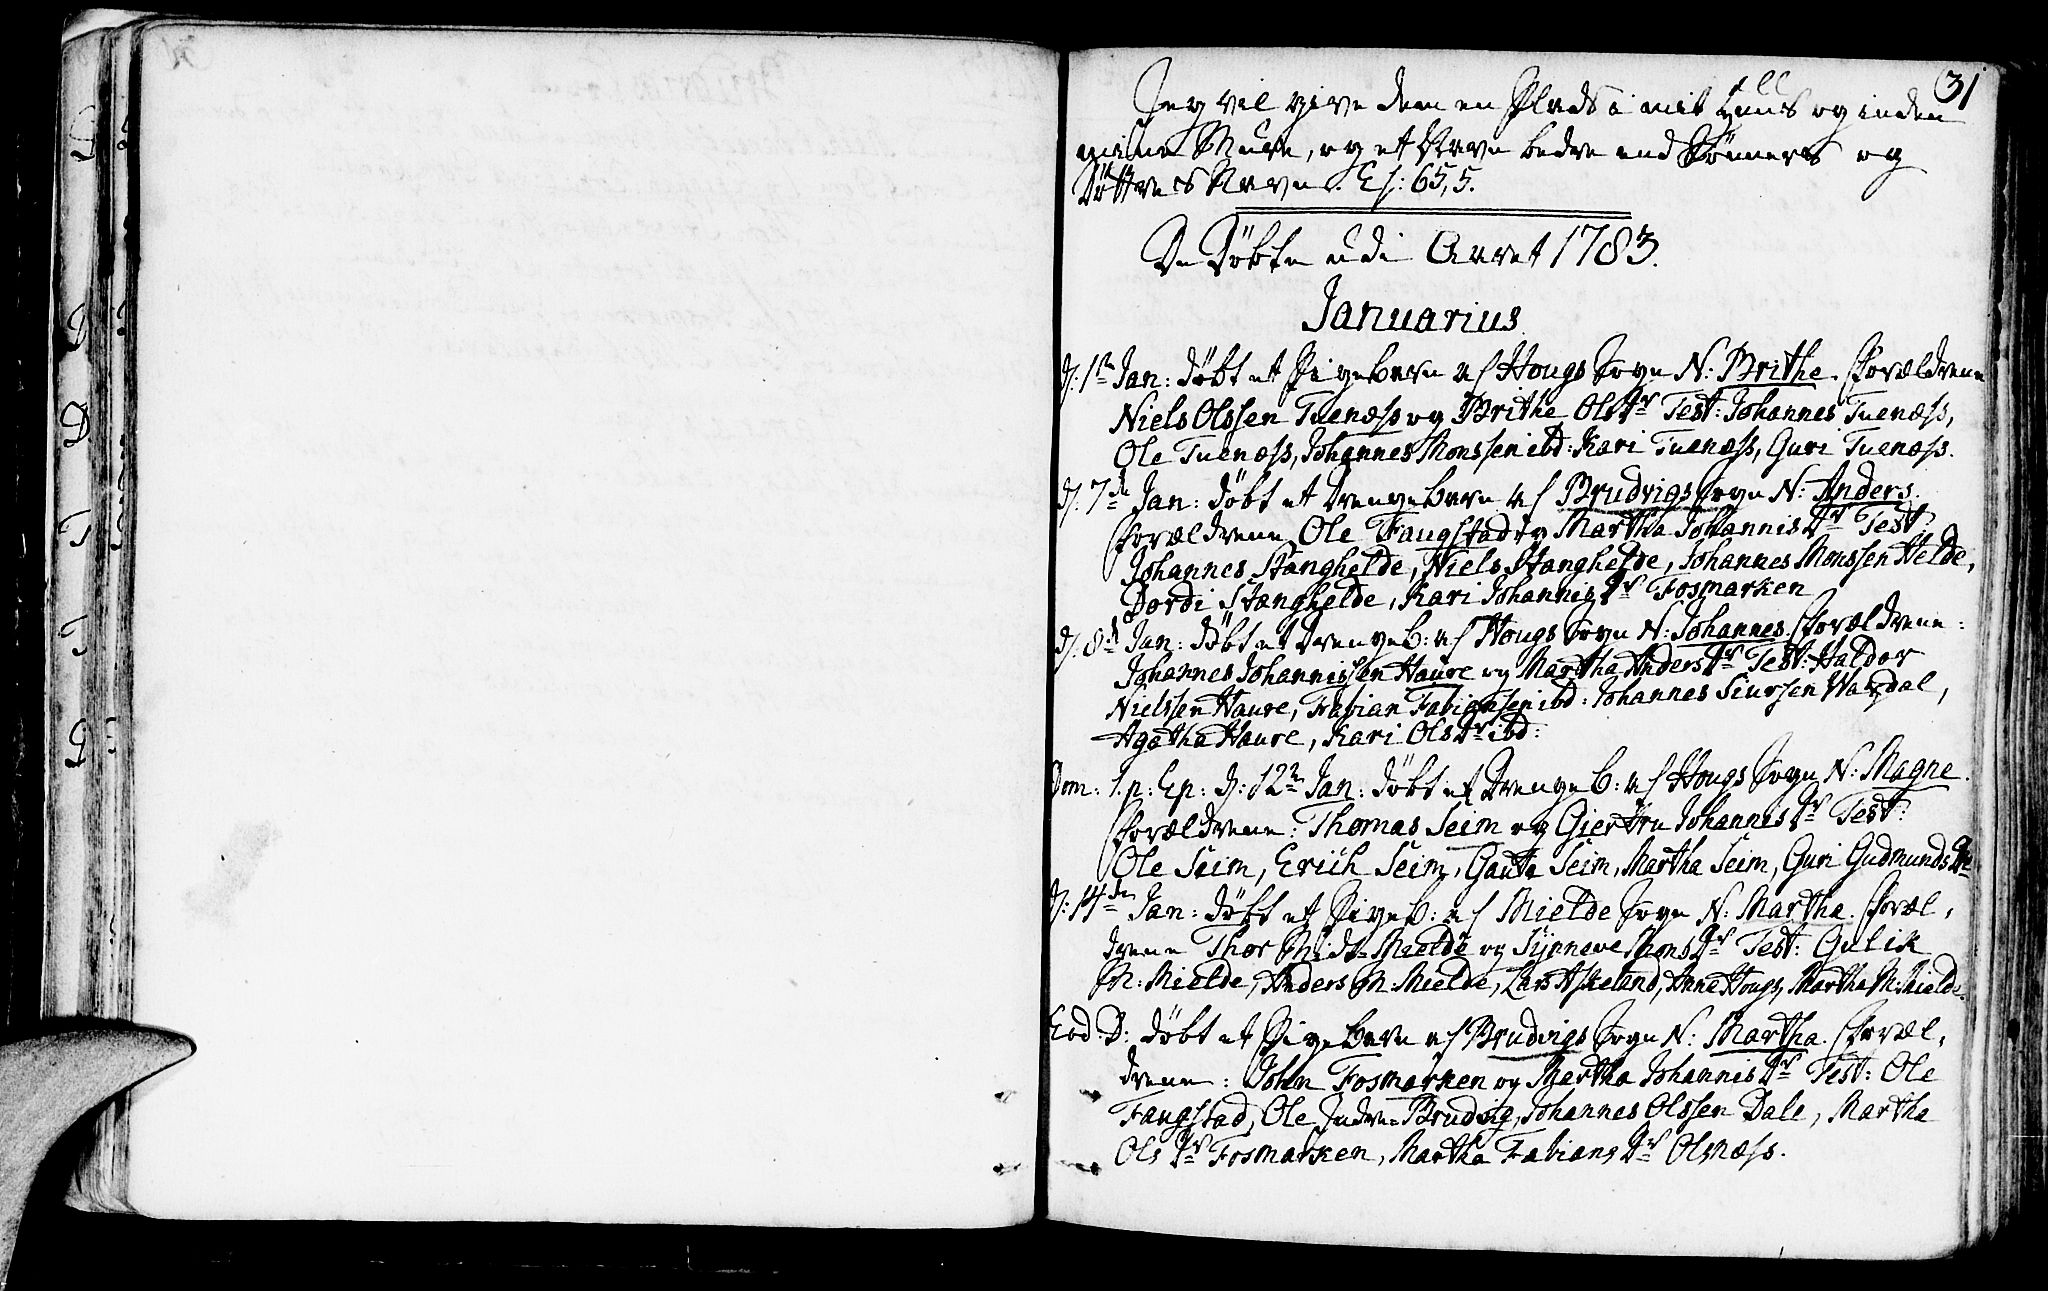 31
Jeg vil give dem en Plads i mit Huus og inden
mine Mure, og et Navn bedre end Sønners og
Døttres Navn. Es: 65,5.
De Døbte udi Aaret 1783.
Januarius
d: 1ste Jan: døbt et Pigebarn af Hougs Sogn N: Brithe. Forældrene
Niels Olssen Tuenæss og Brithe Olsdr Test: Johannes Tuenæss,
Ole Tuenæss, Johannes Monssen ibd: Kari Tuenæss, Guri Tuenæss.
d: 7de Jan: døbt et Drengebarn af Brudvigs Sogn N: Anders.
Forældrene Ole Faugstad og Martha Johannisdr Test:
Johannes Stanghelde, Niels Stanghelde, Johannes Monssen Helde,
Dordi Stanghelde, Kari Johannisdr Fosmarken
d: 8de Jan: døbt et Drengeb: af Hougs Sogn N: Johannes. Forældrene:
Johannes Johannissen Haure og Martha Andersdr Test: Haldor
Nielssen Haure, Fabian Fabiansen ibd: Johannes Siursen Wasdal,
Agatha Haure, Kari Olsdr ibd:
Dom: 1. p: Ep: d: 12te Jan: døbt et Drengeb: af Hougs Sogn N: Magne.
Forældrene: Thomas Seim og Giertru Johannisdr Test:
Ole Seim, Erich Seim, Gaute Seim, Martha Seim, Guri Gudmundsdr
d: 14de Jan: døbt et Pigeb: af Mielde Sogn N: Martha. Foræl,
drene Thor Midt-Mielde og Synneve Monsdr Test: Gulik
M: Mielde, Anders M: Mielde, Lars Askeland, Anna Houge, Martha M: Mielde.
Eod. D: døbt et Pigebarn af Brudvigs Sogn N: Martha. Foræl,
drene: John Fosmarken og Martha Johannisdr Test: Ole
Faugstad, Ole Indre Brudvig, Johannes Olssen Dale, Martha
Olsdr Fosmarken, Martha Fabiansdr Olsnæss.